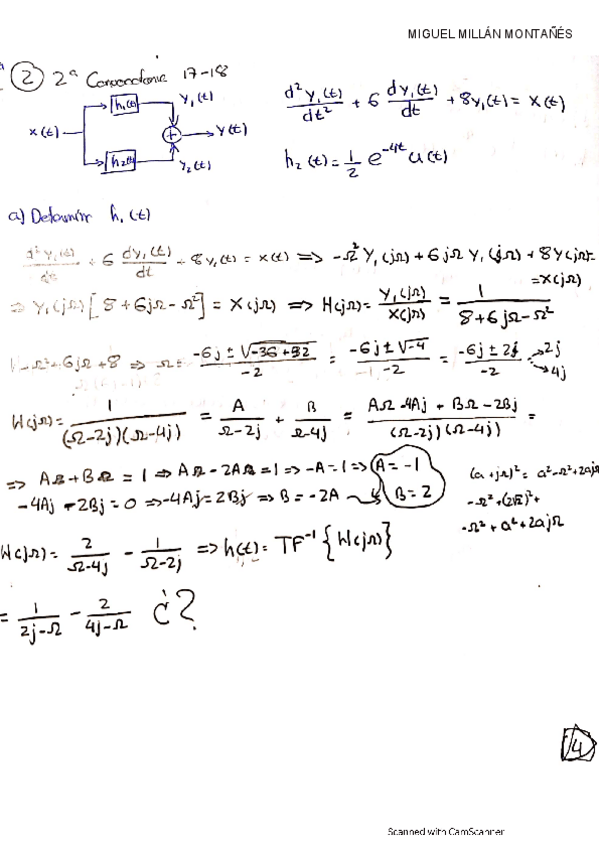 MIGUEL MILLÁN MONTAÑÉS
② 2ª Convocatoria 17-18
x(t) h₁(t) y₁(t) + y(t) h₂(t) y₂(t)
d²y₁(t)/dt² + 6 dy₁(t)/dt + 8y₁(t) = x(t)
h₂(t) = 1/2 e^(-4t) u(t)
a) Determinir h₁(t)
d²y₁(t)/dt + 6 dy₁(t)/dt + 8y₁(t) = x(t) ⇒ -Ω²Y₁(jΩ) + 6jΩ Y₁(jΩ) + 8Y(jΩ) =
= X(jΩ)
⇒ Y₁(jΩ)[8 + 6jΩ - Ω²] = X(jΩ) ⇒ H(jΩ) = Y₁(jΩ)/X(jΩ) = 1/(8 + 6jΩ - Ω²)
-Ω² + 6jΩ + 8 ⇒ Ω = (-6j ± √(-36+32))/-2 = (-6j ± √-4)/-2 = (-6j ± 2j)/-2 → 2j
→ 4j
H(jΩ) = 1/((Ω-2j)(Ω-4j)) = A/(Ω-2j) + B/(Ω-4j) = (AΩ - 4Aj + BΩ - 2Bj)/((Ω-2j)(Ω-4j)) =
⇒ AΩ + BΩ = 1 ⇒ AΩ - 2AΩ = 1 ⇒ -A = 1 ⇒ A = -1
-4Aj - 2Bj = 0 ⇒ -4Aj = 2Bj ⇒ B = -2A → B = 2
(a + jΩ)² = a² - Ω² + 2ajΩ
-Ω² + (2√2)² +
-Ω² + a² + 2ajΩ
H(jΩ) = 2/(Ω-4j) - 1/(Ω-2j) ⇒ h(t) = TF⁻¹{H(jΩ)}
= 1/(2j-Ω) - 2/(4j-Ω) ¿?
14
Scanned with CamScanner